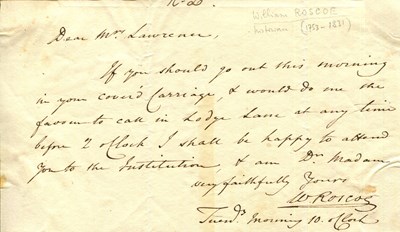 William ROSCOE
(1753-1831)
Dear Mrs Lawrence,
If you should go out this morning
in your cover'd Carriage, & would do me the
favour to call in Lodge Lane at any time
before 2 oClock I shall be happy to attend
you to the Institution, & am Dr Madam
very faithfully Yours
W Roscoe
Tuesd. Morning 10. oClock